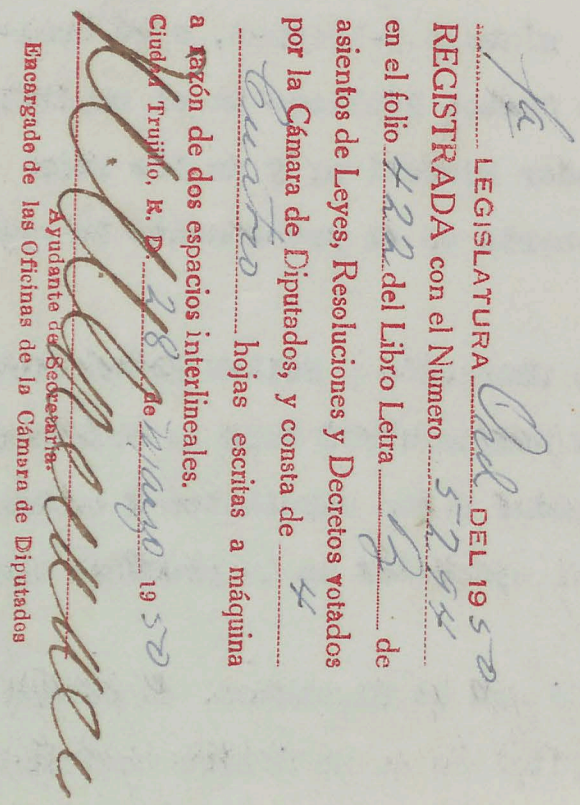 1a LEGISLATURA Ord DEL 1950
REGISTRADA con el Numero 5794
en el folio 422 del Libro Letra B de
asientos de Leyes, Resoluciones y Decretos votados
por la Cámara de Diputados, y consta de 4
Cuatro hojas escritas a máquina
a razón de dos espacios interlineales.
Ciudad Trujillo, R. D. 28 de mayo 1950
Ayudante de Secretaría.
Encargado de las Oficinas de la Cámara de Diputados